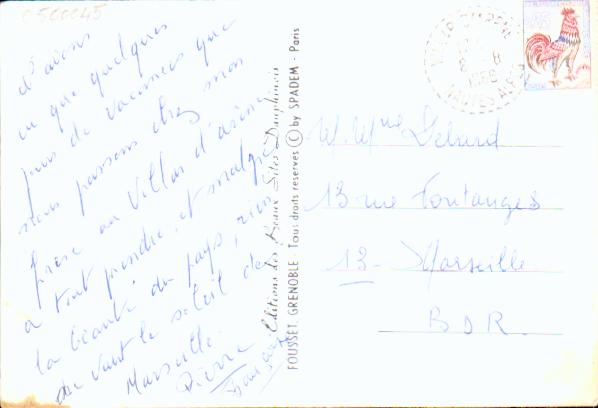 C500045
d'avons
eu que quelques
jours de vacances que
nous passons chez mon
frère au Villar d'arène
a tout prendre, et malgré
la beauté du pays, rien
ne vaut le soleil de
Marseille.
Pierre
Editions des Beaux Sites Dauphinois
FOUSSET GRENOBLE - Tous droits reservés © by SPADEM - Paris
8
1966
HAUTES ALPES
M. Mme Debard
13 rue Fontanges
13 - Marseille
BDR.